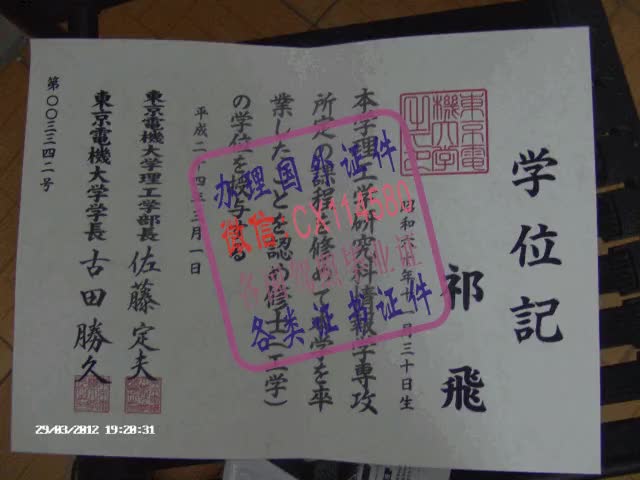 学位記
祁飛
東京電機大学
昭和六十年十一月三十日生
本学理工学研究科情報学専攻
所定の課程を修めて本学を卒
業したことを認め修士(工学)
の学位を授与する
平成二十四年三月一日
東京電機大学理工学部長 佐藤定夫
東京電機大学学長 古田勝久
第〇〇三三四二号
办理国外证件
微信:CX114580
各类证书证件
29/03/2012 19:20:31